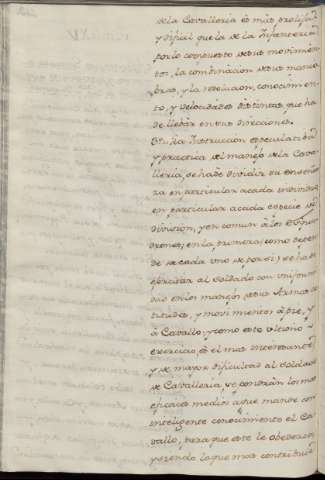 de la Cavalleria es mas prolija
y dificil que la de la Infanteria
por lo compuesto de sus movimien
tos, la combinacion de sus manio
bras, y la resolucion, conocimien
to, y velocidades distintas que ha
de llebar en sus direcciones.
En la Instruccion especulatiba
y practica del manejo de la Cava
lleria, se ha de dividir su enseñan
za en particular a cada individuo
en particular a cada especie de
division, y en comun a los Esqua
drones; en la primera, como depen
de de cada uno de por si, se ha de
exercitar al Soldado con uniformi
dad en los manejos de sus Armas
titudes, y movimientos a pie, y
a Cavallo; y como este ultimo
exercicio, es el mas interesante
y de mayor dificultad al Soldado
de Cavalleria, se pondran los mas
eficaces medios a que mande con
inteligente conocimiento el Ca
vallo, para que este le obedezca
y siendo lo que mas contribuie